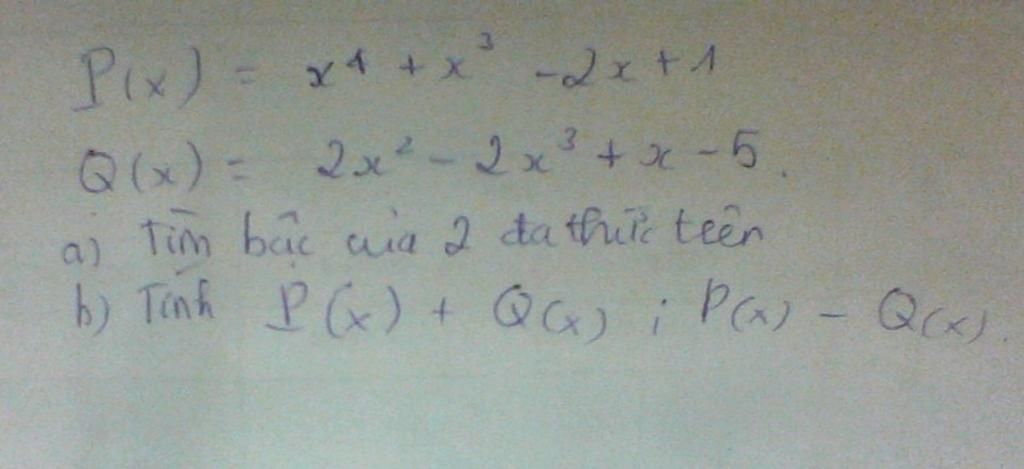 P(x) = x⁴ + x³ - 2x + 1
Q(x) = 2x² - 2x³ + x - 5.
a) Tìm bậc của 2 đa thức trên
b) Tính P(x) + Q(x) ; P(x) - Q(x).